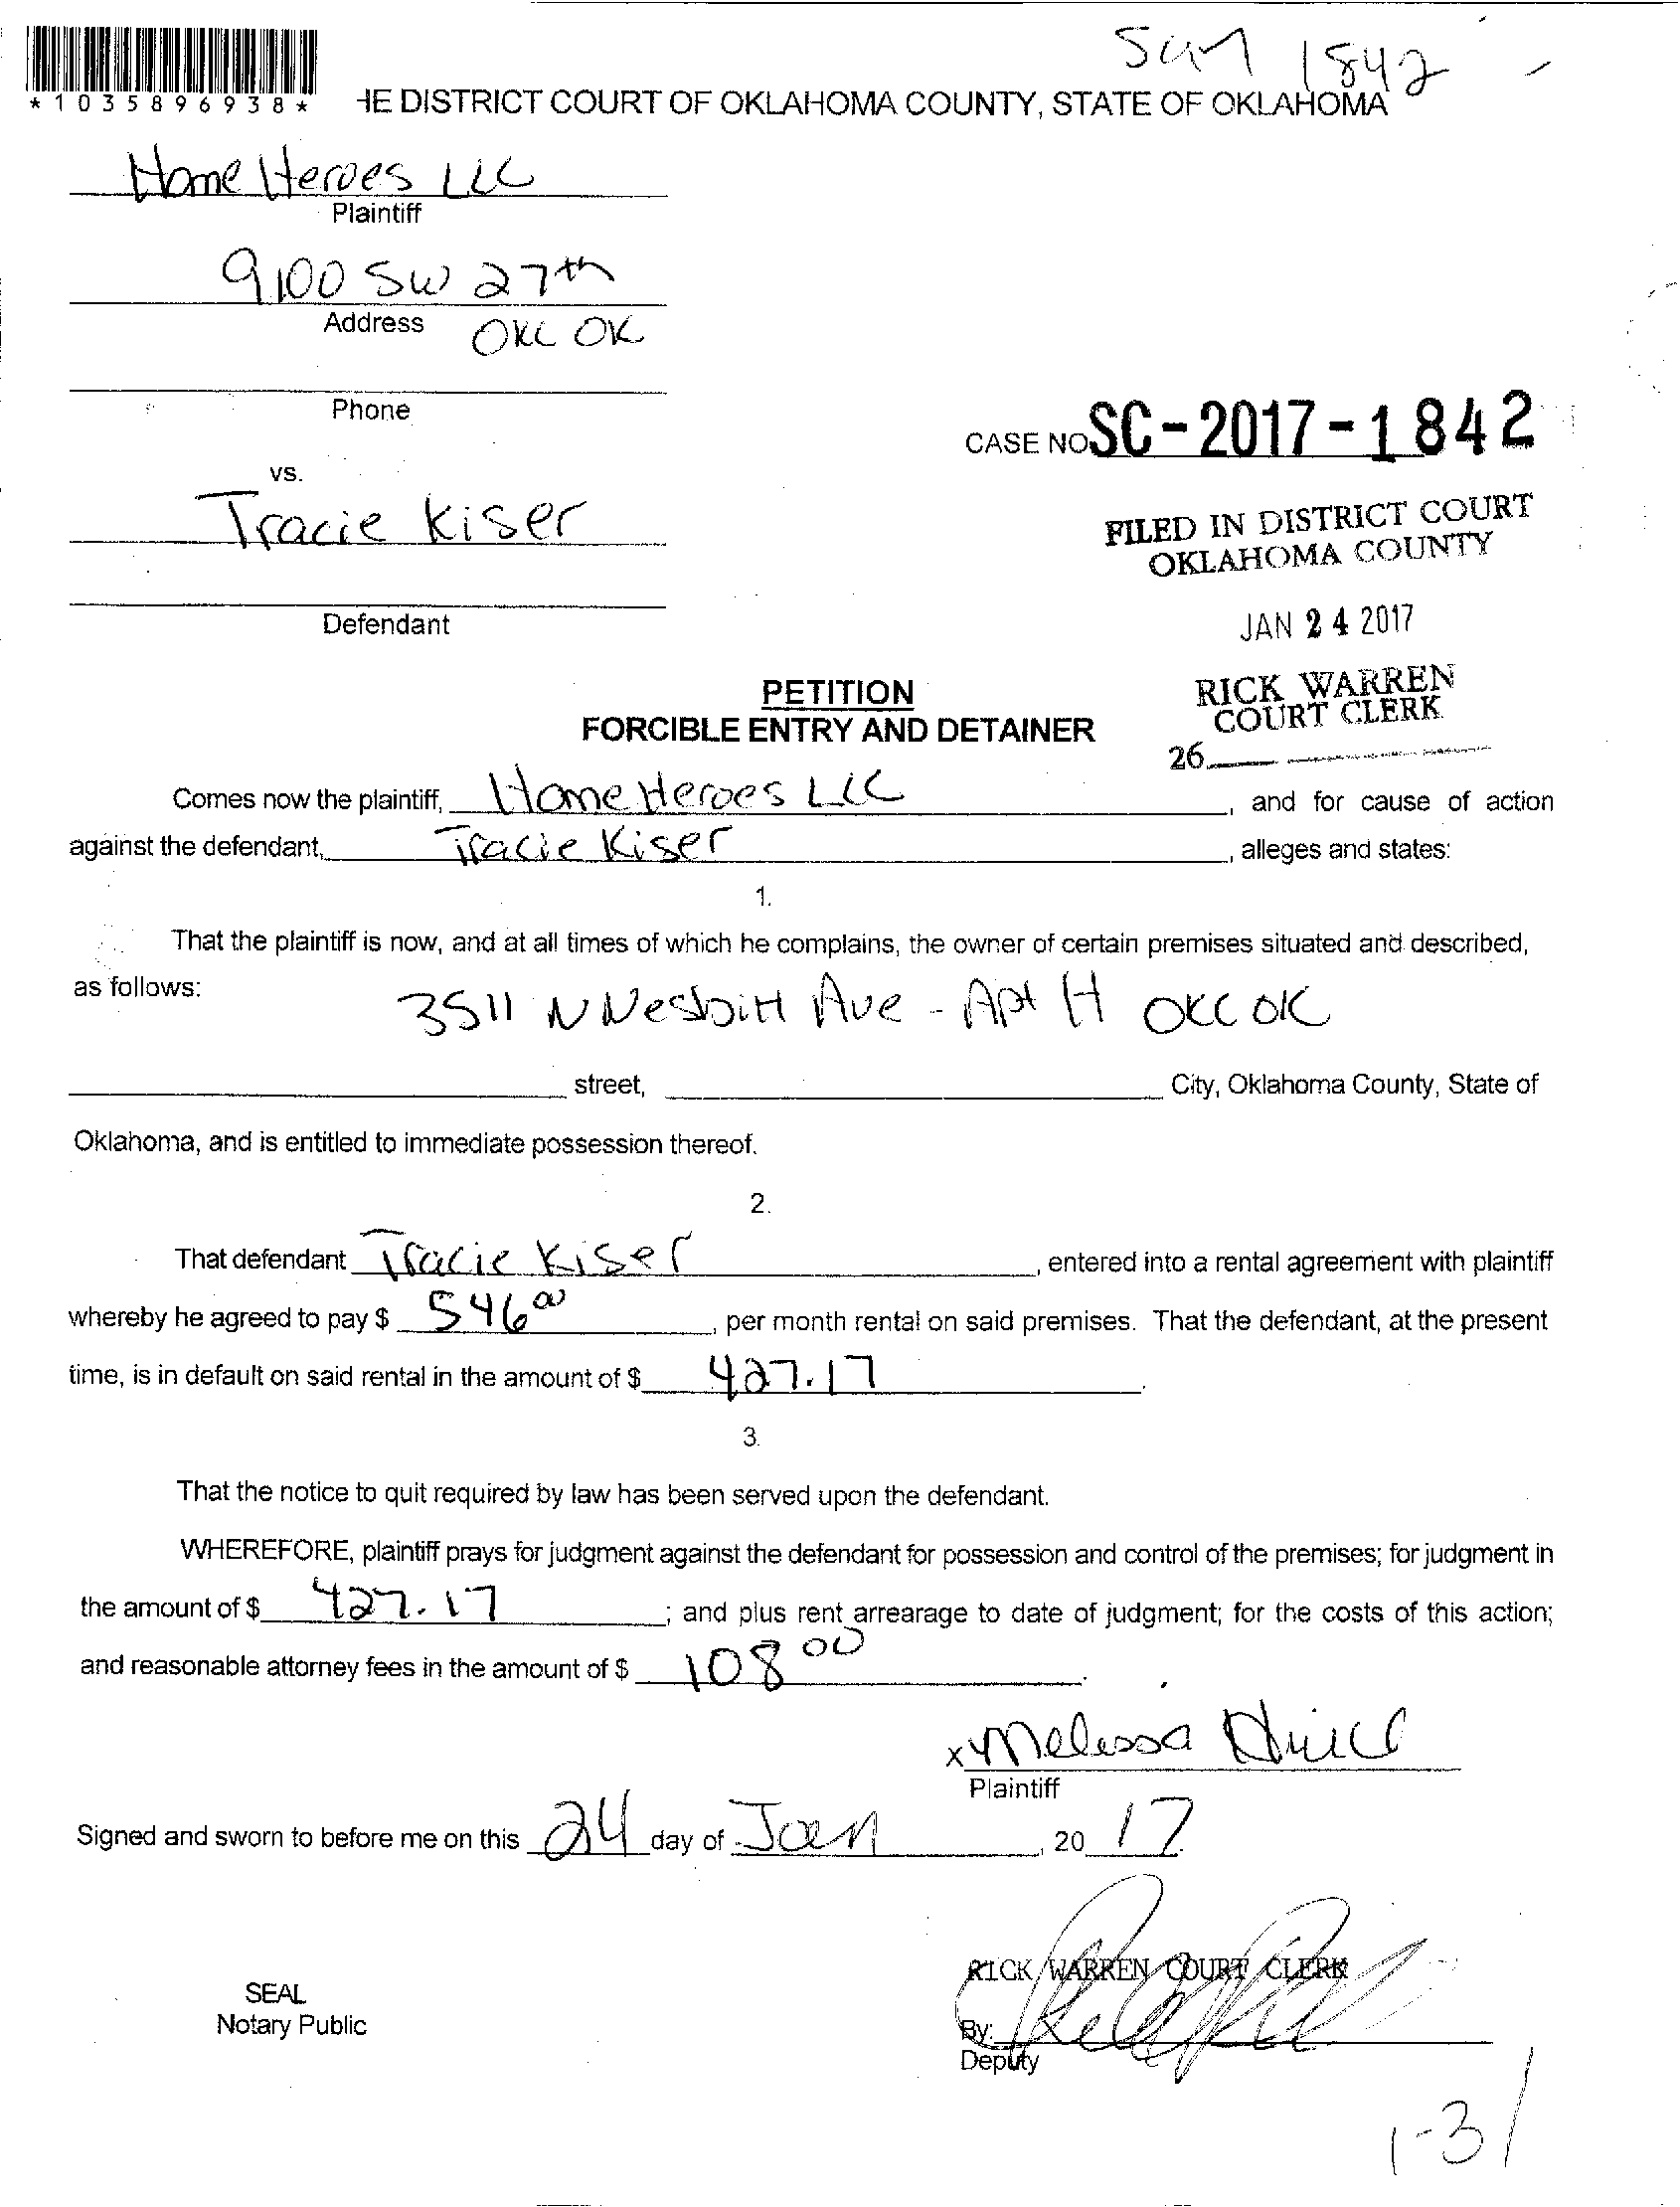 1842
*1035896938*
HE DISTRICT COURT OF OKLAHOMA COUNTY, STATE OF OKLAHOMA
Home Heroes LLC
Plaintiff
9100 SW 27th
Address OKC OK
Phone
CASE NO. SC-2017-1842
vs.
Tracie Kiser
FILED IN DISTRICT COURT
OKLAHOMA COUNTY
Defendant
JAN 24 2017
PETITION
RICK WARREN
COURT CLERK
FORCIBLE ENTRY AND DETAINER
26
Comes now the plaintiff, Home Heroes LLC, and for cause of action
against the defendant, Tracie Kiser, alleges and states:
1.
That the plaintiff is now, and at all times of which he complains, the owner of certain premises situated and described,
as follows:
3511 N Nesbitt Ave - Apt H OKC OK
street, City, Oklahoma County, State of
Oklahoma, and is entitled to immediate possession thereof.
2.
That defendant Tracie Kiser, entered into a rental agreement with plaintiff
whereby he agreed to pay $ 546 00, per month rental on said premises. That the defendant, at the present
time, is in default on said rental in the amount of $ 427.17.
3.
That the notice to quit required by law has been served upon the defendant.
WHEREFORE, plaintiff prays for judgment against the defendant for possession and control of the premises; for judgment in
the amount of $ 427.17; and plus rent arrearage to date of judgment; for the costs of this action;
and reasonable attorney fees in the amount of $ 108 00.
x Melissa
Plaintiff
Signed and sworn to before me on this 24 day of Jan, 20 17.
RICK WARREN COURT CLERK
SEAL
Notary Public
By:
Deputy
1-31